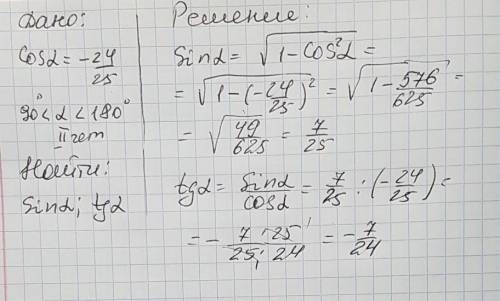 Дано:
Cosα = -24/25
90° < α < 180°
II чет
Найти:
Sinα; tgα
Решение:
Sinα = √(1 - cos²α) =
= √(1 - (-24/25)²) = √(1 - 576/625) =
= √(49/625) = 7/25
tgα = Sinα/cosα = 7/25 : (-24/25) =
= - 7·25/25·24 = -7/24